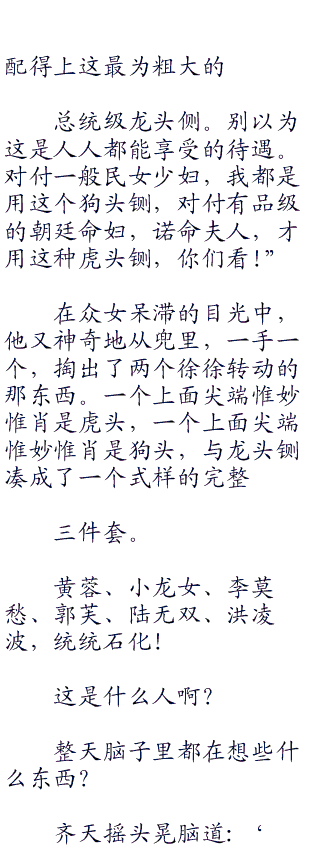 配得上这最为粗大的
总统级龙头侧。别以为
这是人人都能享受的待遇。
对付一般民女少妇，我都是
用这个狗头铡，对付有品级
的朝廷命妇，诺命夫人，才
用这种虎头铡，你们看！”
在众女呆滞的目光中，
他又神奇地从兜里，一手一
个，掏出了两个徐徐转动的
那东西。一个上面尖端惟妙
惟肖是虎头，一个上面尖端
惟妙惟肖是狗头，与龙头铡
凑成了一个式样的完整
三件套。
黄蓉、小龙女、李莫
愁、郭芙、陆无双、洪凌
波，统统石化！
这是什么人啊？
整天脑子里都在想些什
么东西？
齐天摇头晃脑道：‘